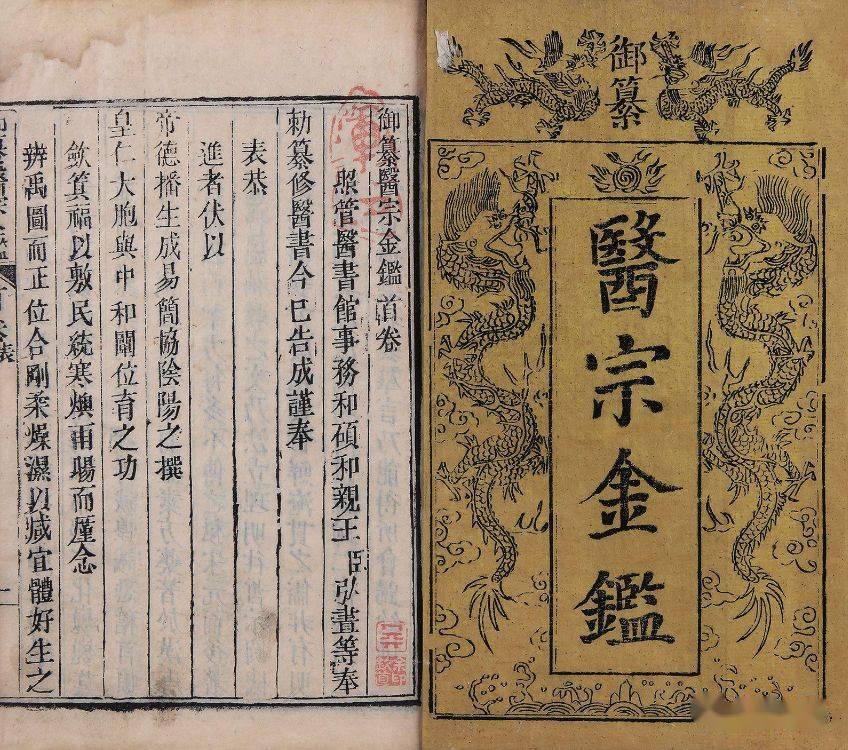 御纂
醫宗金鑑
御纂醫宗金鑑首卷
照管醫書館事務和碩和親王臣弘晝等奉
勅纂修醫書今已告成謹奉
表恭
進者伏以
帝德播生成易簡協陰陽之撰
皇仁大胞與中和闡位育之功
歛箕福以敷民統寒燠雨暘而廑念
辨禹圖而正位合剛柔燥濕以咸宜體好生之